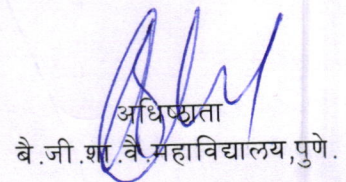 अधिष्ठाता
बै.जी.शा.वै.महाविद्यालय,पुणे.